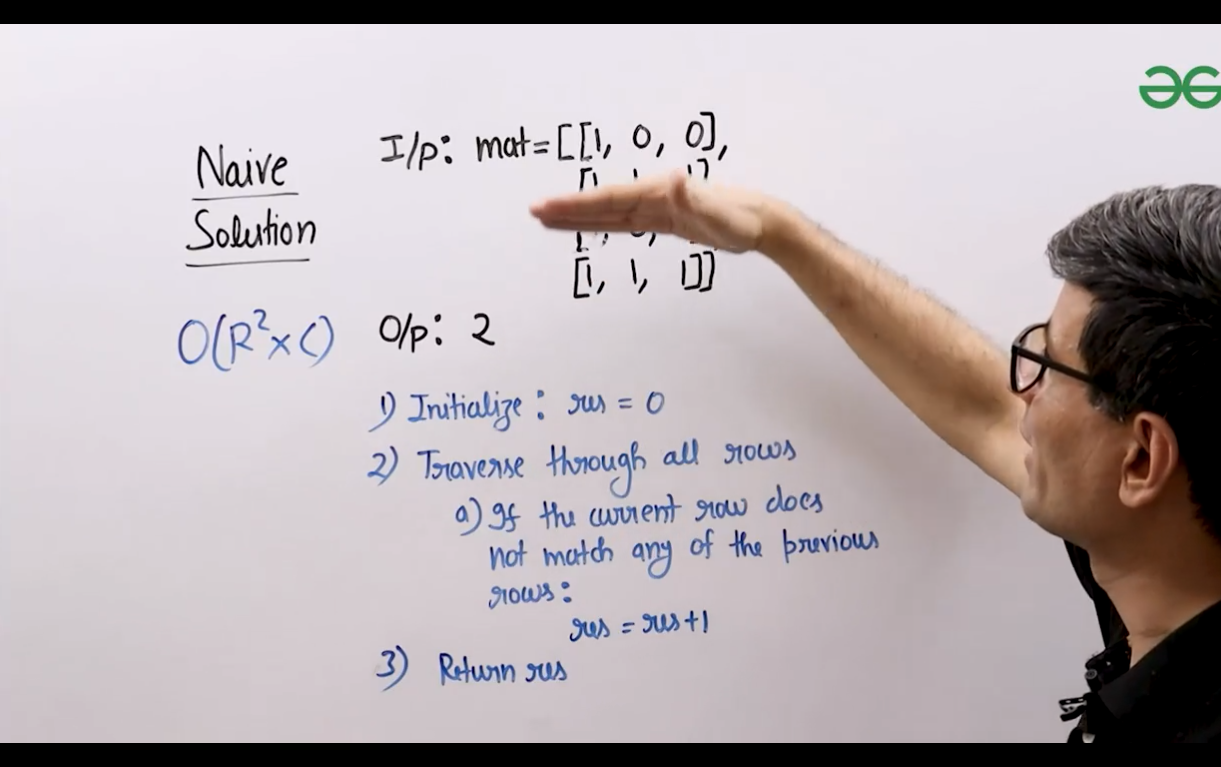 Naive
Solution
O(R²×C)
I/p: mat=[[1, 0, 0],
[1, 1, 1]]
O/p: 2
1) Initialize: res = 0
2) Traverse through all rows
a) If the current row does
not match any of the previous
rows:
res = res+1
3) Return res